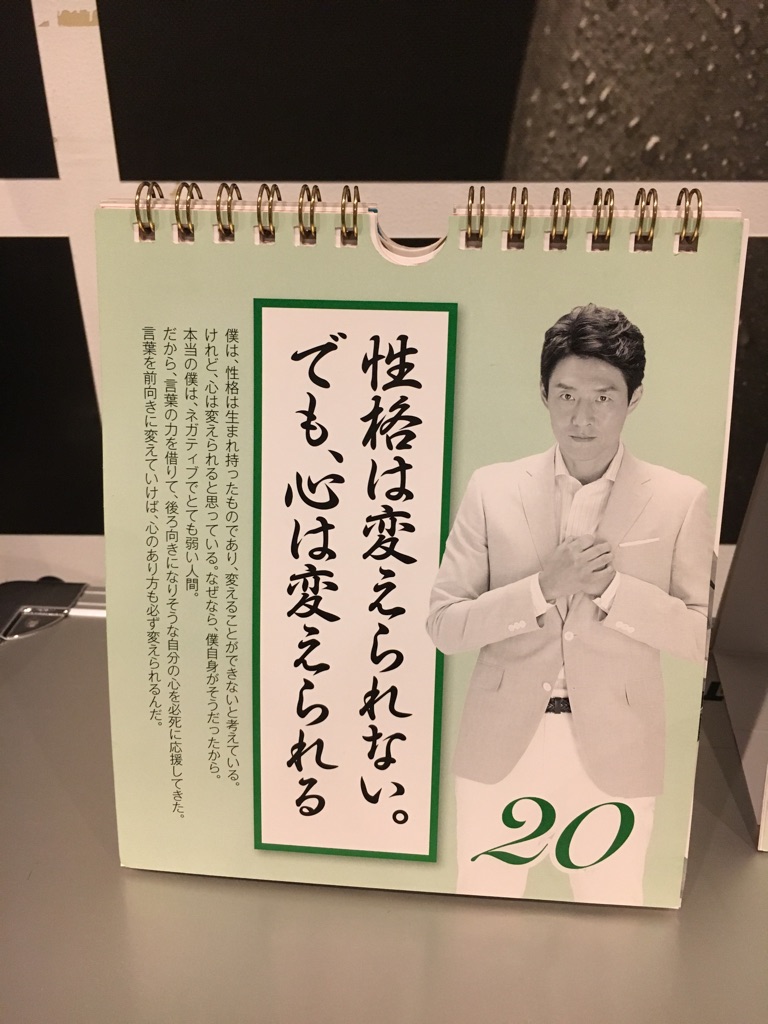 性格は変えられない。
でも、心は変えられる
僕は、性格は生まれ持ったものであり、変えることができないと考えている。
けれど、心は変えられると思っている。なぜなら、僕自身がそうだったから。
本当の僕は、ネガティブでとても弱い人間。
だから、言葉の力を借りて、後ろ向きになりそうな自分の心を必死に応援してきた。
言葉を前向きに変えていけば、心のあり方も必ず変えられるんだ。
20